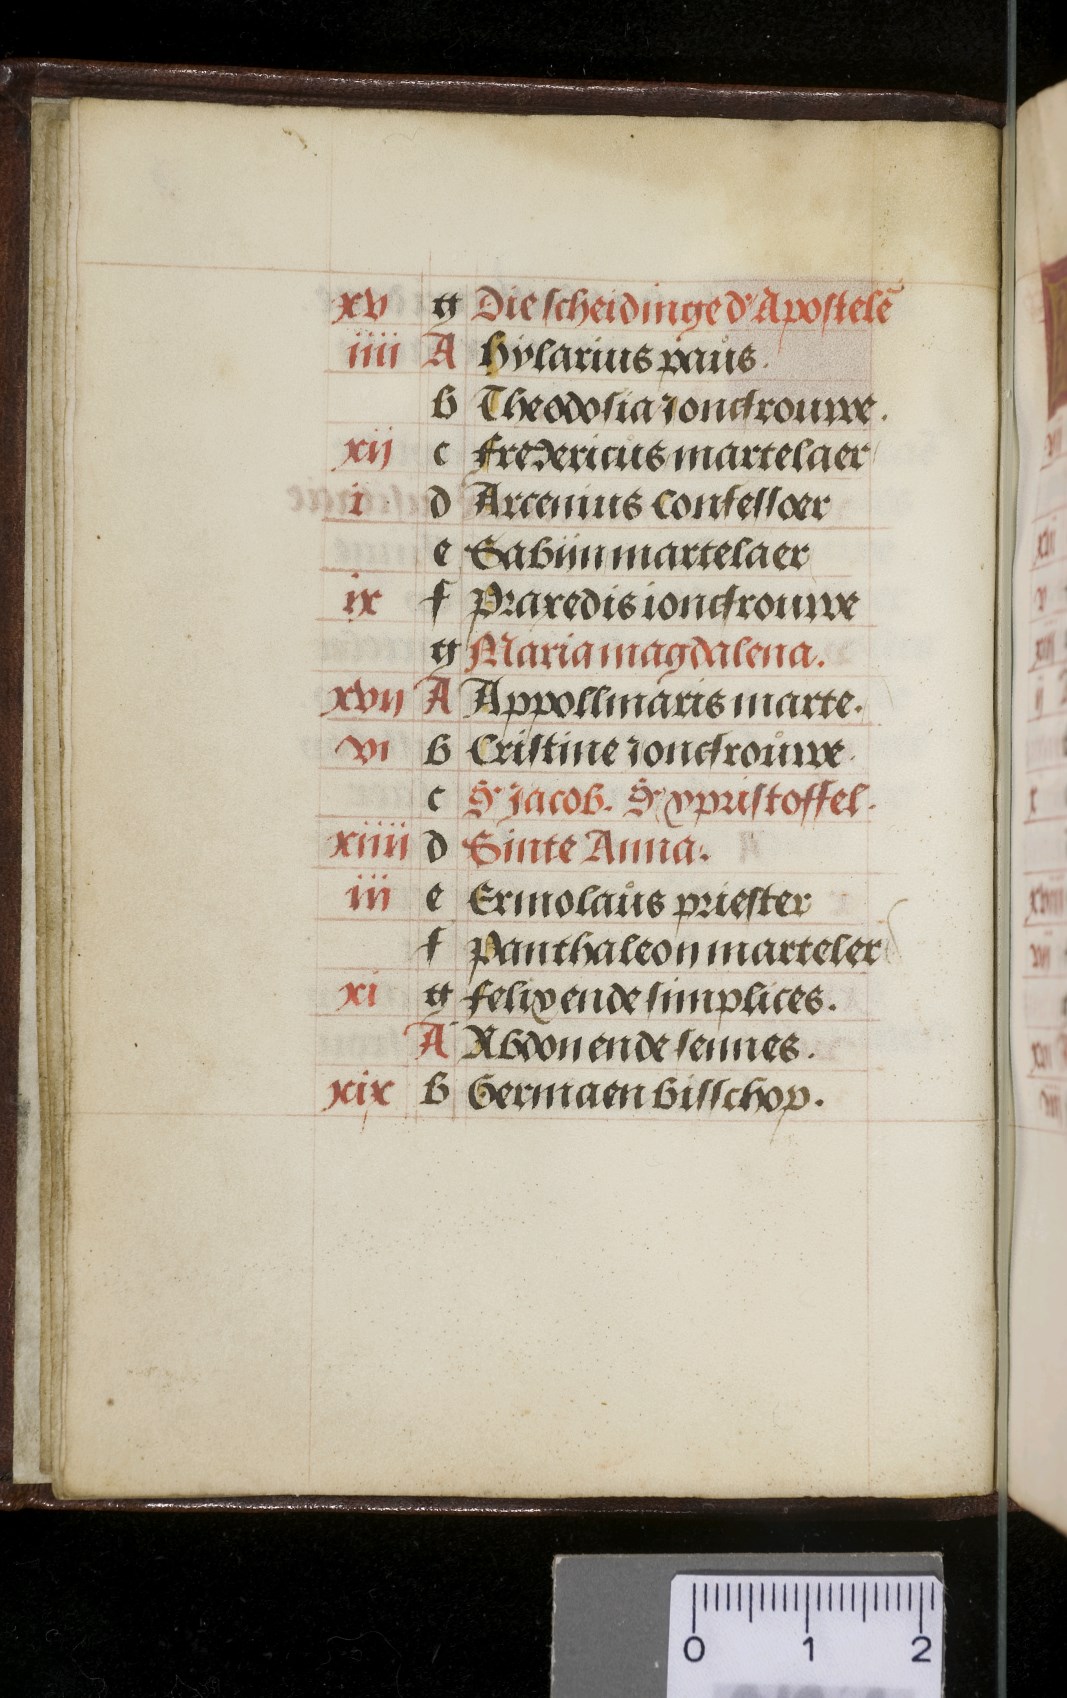 xv g Die scheidinge d' Apostelē
iiii A Hylarius paus.
b Theodosia ioncfrouwe.
xij c Fredericus martelaer
i d Arcenius confessoer
e Sabijn martelaer
ix f Praxedis ioncfrouwe
g Maria magdalena.
xvij A Appollinaris marte.
vi b Cristine ioncfrouwe.
c S' Jacob. S' xpristoffel.
xiiii d Sinte Anna.
iij e Ermolaus priester
f Panthaleon marteler
xi g Felix ende simplices.
A Abdon ende sennes.
xix b Germaen bisschop.
0 1 2